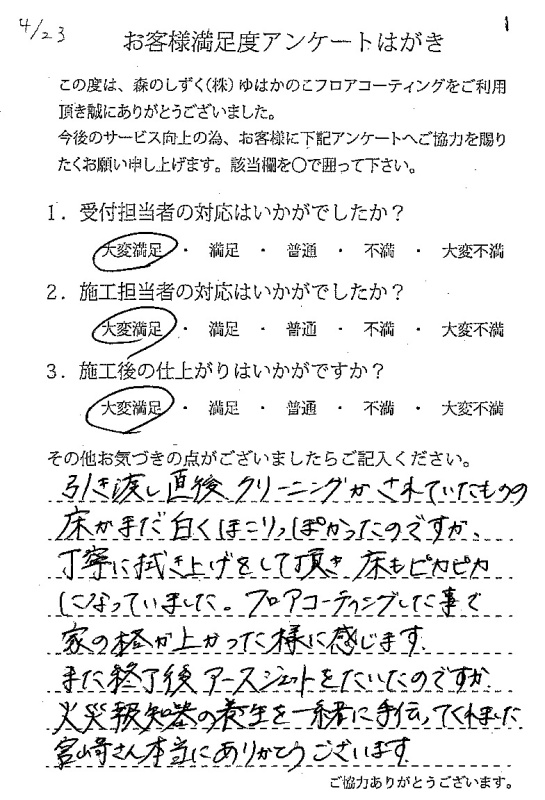 4/23
1
お客様満足度アンケートはがき
この度は、森のしずく(株)ゆはかのこフロアコーティングをご利用
頂き誠にありがとうございました。
今後のサービス向上の為、お客様に下記アンケートへご協力を賜り
たくお願い申し上げます。該当欄を○で囲って下さい。
1．受付担当者の対応はいかがでしたか？
大変満足 ・ 満足 ・ 普通 ・ 不満 ・ 大変不満
2．施工担当者の対応はいかがでしたか？
大変満足 ・ 満足 ・ 普通 ・ 不満 ・ 大変不満
3．施工後の仕上がりはいかがですか？
大変満足 ・ 満足 ・ 普通 ・ 不満 ・ 大変不満
その他お気づきの点がございましたらご記入ください。
引き渡し直後クリーニングがされていたものの
床がまだ白くほこりっぽかったのですが、
丁寧に拭き上げをして頂き床もピカピカ
になっていました。フロアコーティングした事で
家の格が上がった様に感じます。
また終了後アースジェットをたいたのですが
火災報知器の養生を一緒に手伝ってくれました
宮崎さん本当にありがとうございます
ご協力ありがとうございます。